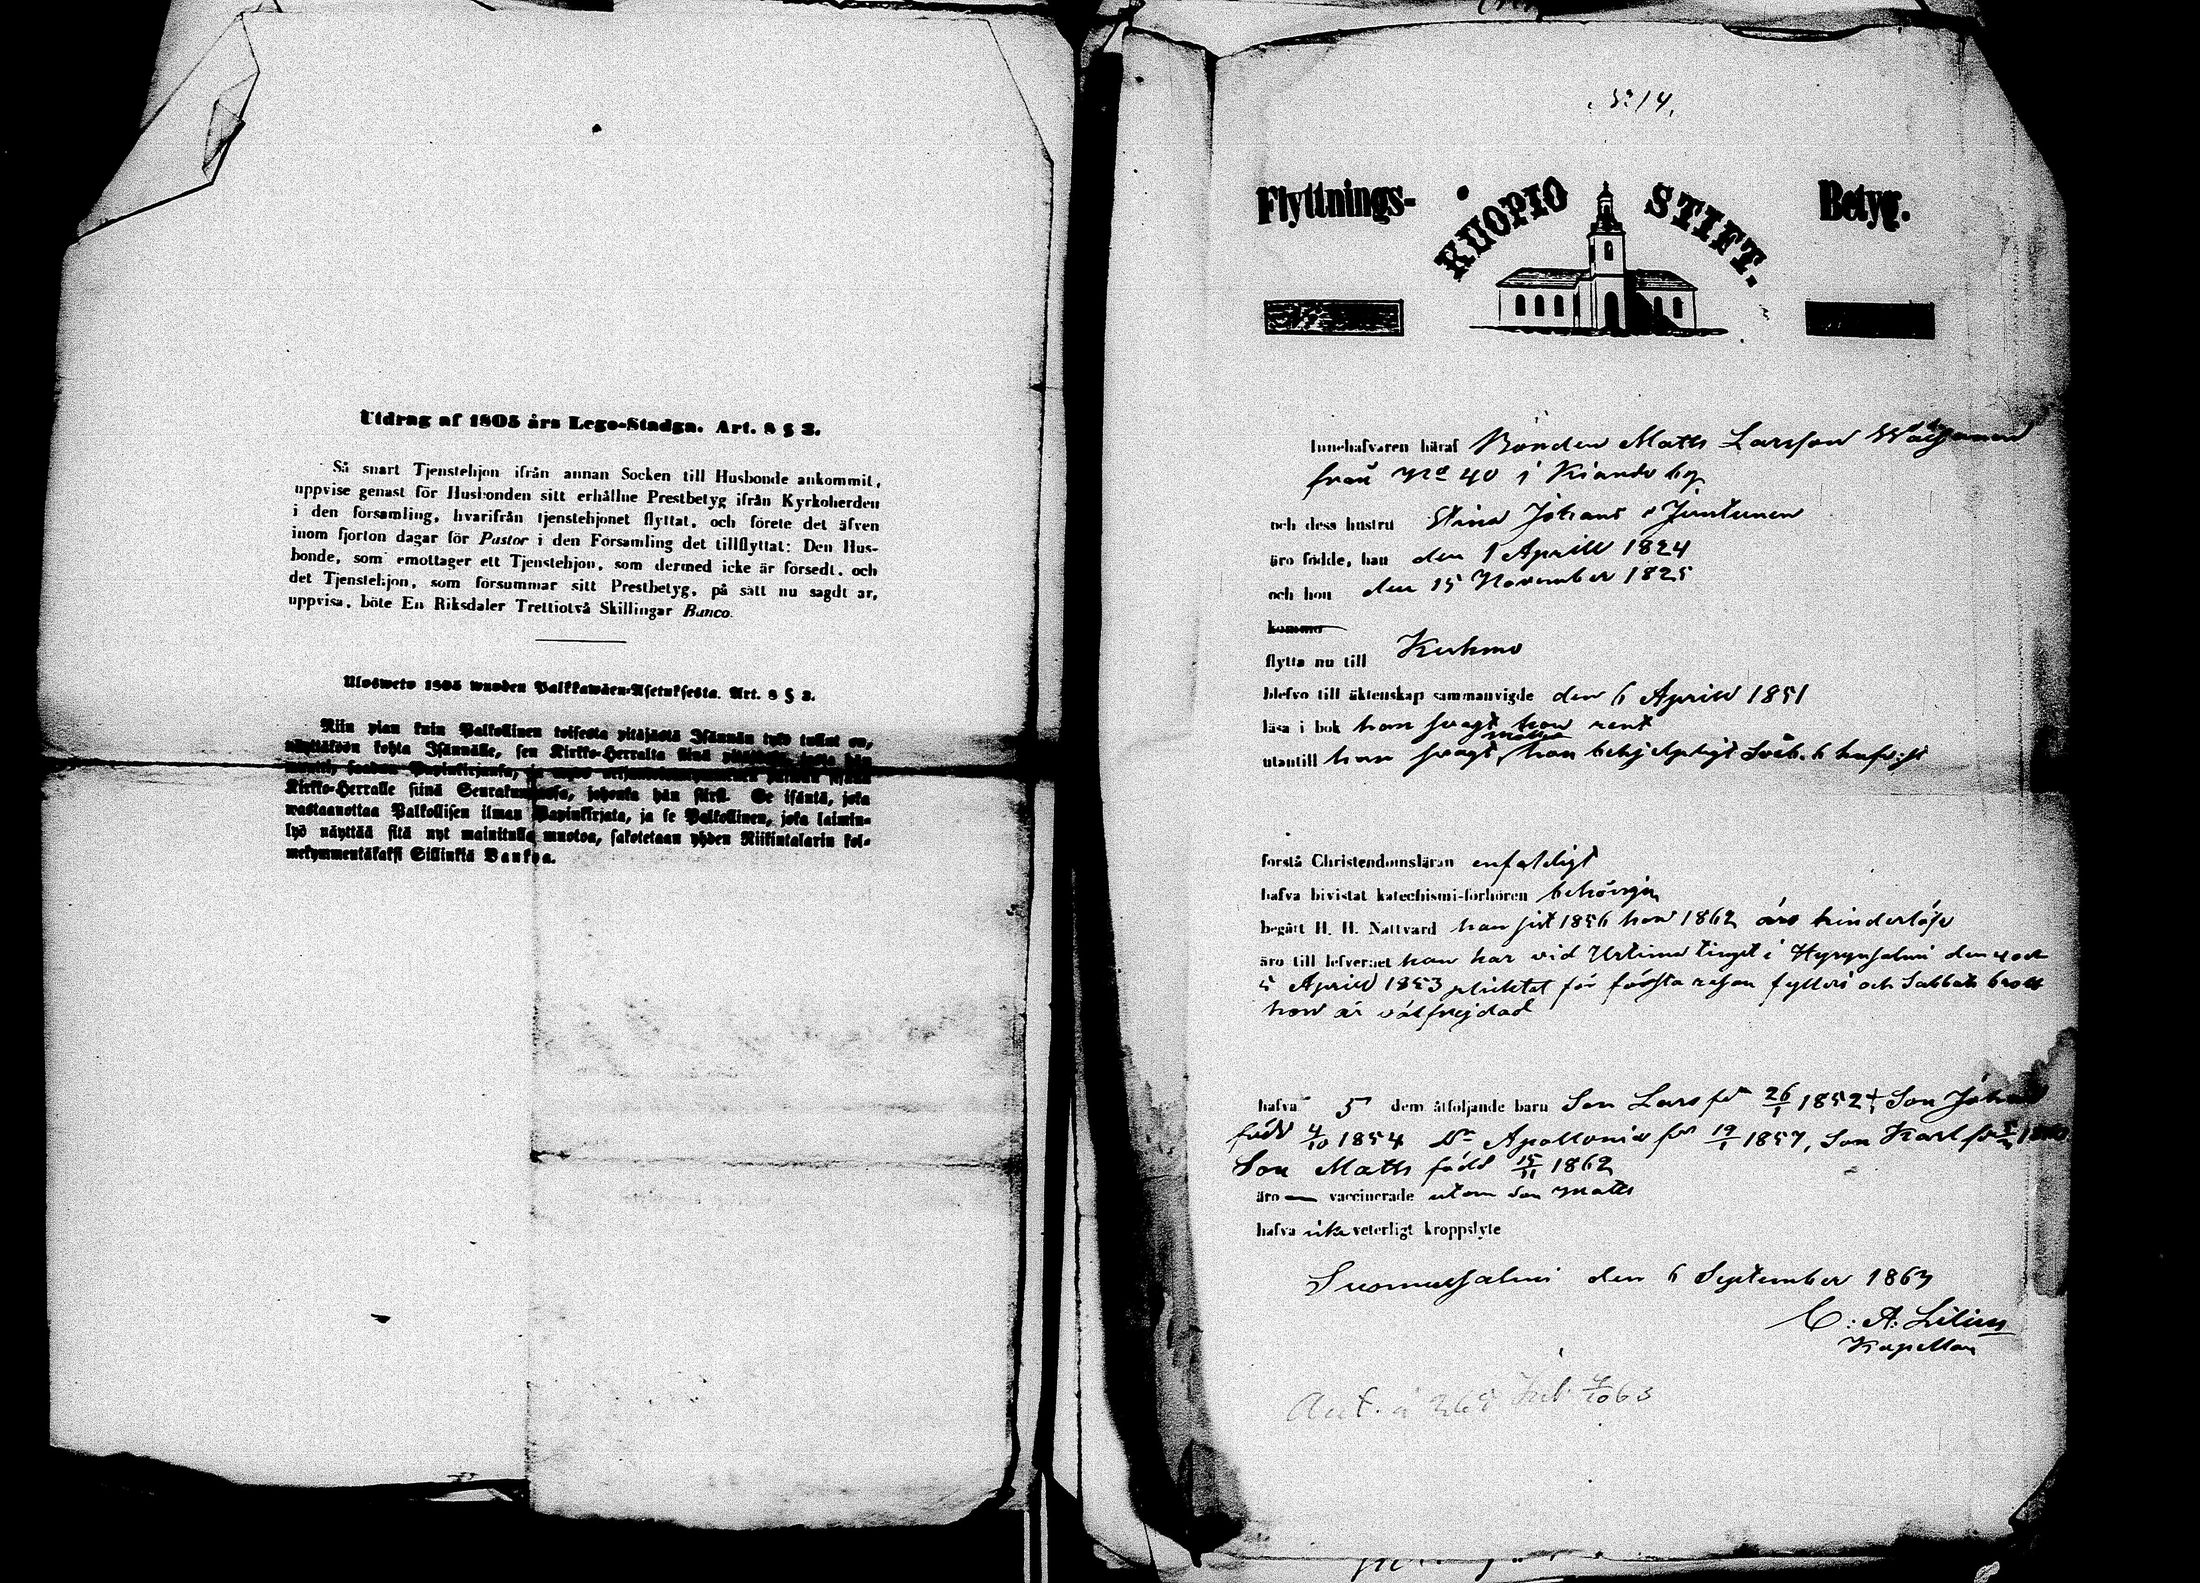 Utdrag af 1805 års Lego-Stadga. Art. 8 § 3.
Så snart Tjenstehjon ifrån annan Socken till Husbonde ankommit,
uppvise genast för Husbonden sitt erhållne Prestbetyg ifrån Kyrkoherden
i den församling, hvarifrån tjenstehjonet flyttat, och förete det äfven
inom fjorton dagar för Pastor i den Församling det tillflyttat: Den Hus-
bonde, som emottager ett Tjenstehjon, som dermed icke är försedt, och
det Tjenstehjon, som försummar sitt Prestbetyg, på sätt nu sagdt är,
uppvisa, böte En Riksdaler Trettiotvå Skillingar Banco.
Ulosweto 1805 wuoden Palkkawäen-Asetuksesta. Art. 8 § 3.
Niin pian kuin Palkollinen toisesta pitäjästä Isännän tykö tullut on,
näyttäköön kohta Isännälle, sen Kirkko-Herralta siinä
saadun Papinkirjansa,
Kirkko-Herralle siinä Seurakunnassa, johonka hän siirsi. Se isäntä, joka
wastaanottaa Palkollisen ilman Papinkirjata, ja se Palkollinen, joka laimin-
lyö näyttää sitä nyt mainitulla muotoa, sakotetaan yhden Riikintalarin kol-
mekymmentäkaksi Sillinkiä Bankoa.
No 14.
Flyttnings- KUOPIO STIFT. Betyg.
Innehafvaren häraf Bonden Matts Larsson
från No 40 i Kiando by
och dess hustru Stina Johans d Juntunen
äro födde, han den 1 Aprill 1824
och hon den 15 November 1825
komma
flytta nu till Kuhmo
blefvo till äktenskap sammanvigde den 6 Aprill 1851
läsa i bok han svagt hon rent
utantill han svagt, hon behjelpligt
förstå Christendomsläran enfaldigt
hafva bivistat katechismi-förhören behörigen
begått H. H. Nattvard han sist 1856 hon 1862 äro hinderlöse
äro till lefvernet han har vid Urtima tinget i Hyrynsalmi den 4 och
5 Aprill 1853 pliktat för första resan fylleri och Sabbats brott
hon är välfrejdad
hafva 5 dem åtföljande barn Son Lars fd 26/1 1852, Son Johan
född 4/10 1854 Dr Apollonia fd 19/1 1857, Son Karl
Son Matts född 15/11 1862
äro — vaccinerade utom Son Matts
hafva icke veterligt kroppslyte
Suomussalmi den 6 September 1863
C: A: Lilius
Kapellan